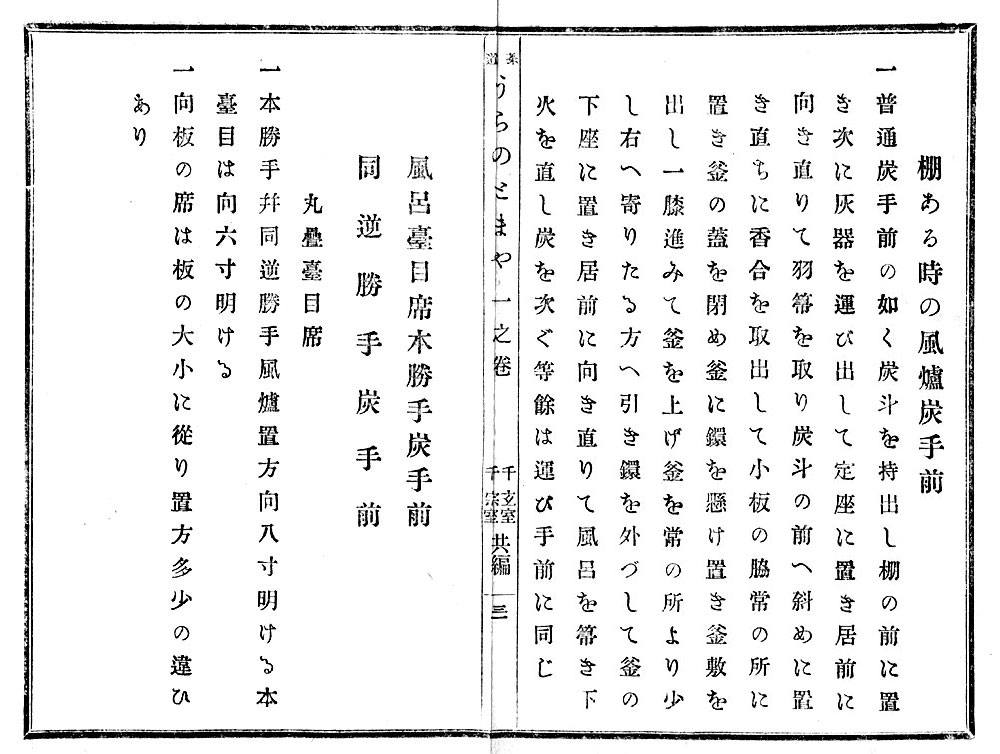 棚ある時の風爐炭手前
一普通炭手前の如く炭斗を持出し棚の前に置
き次に灰器を運び出して定座に置き居前に
向き直りて羽箒を取り炭斗の前へ斜めに置
き直ちに香合を取出して小板の脇常の所に
置き釜の蓋を閉め釜に鐶を懸け置き釜敷を
出し一膝進みて釜を上げ釜を常の所より少
し右へ寄りたる方へ引き鐶を外づして釜の
下座に置き居前に向き直りて風呂を箒き下
火を直し炭を次ぐ等餘は運び手前に同じ
茶道
うらのとまや一之卷
千玄室
千宗室
共編
三
風呂臺目席本勝手炭手前
同逆勝手炭手前
丸疊臺目席
一本勝手幷同逆勝手風爐置方向八寸明ける本
臺目は向六寸明ける
一向板の席は板の大小に從り置方多少の違ひ
あり